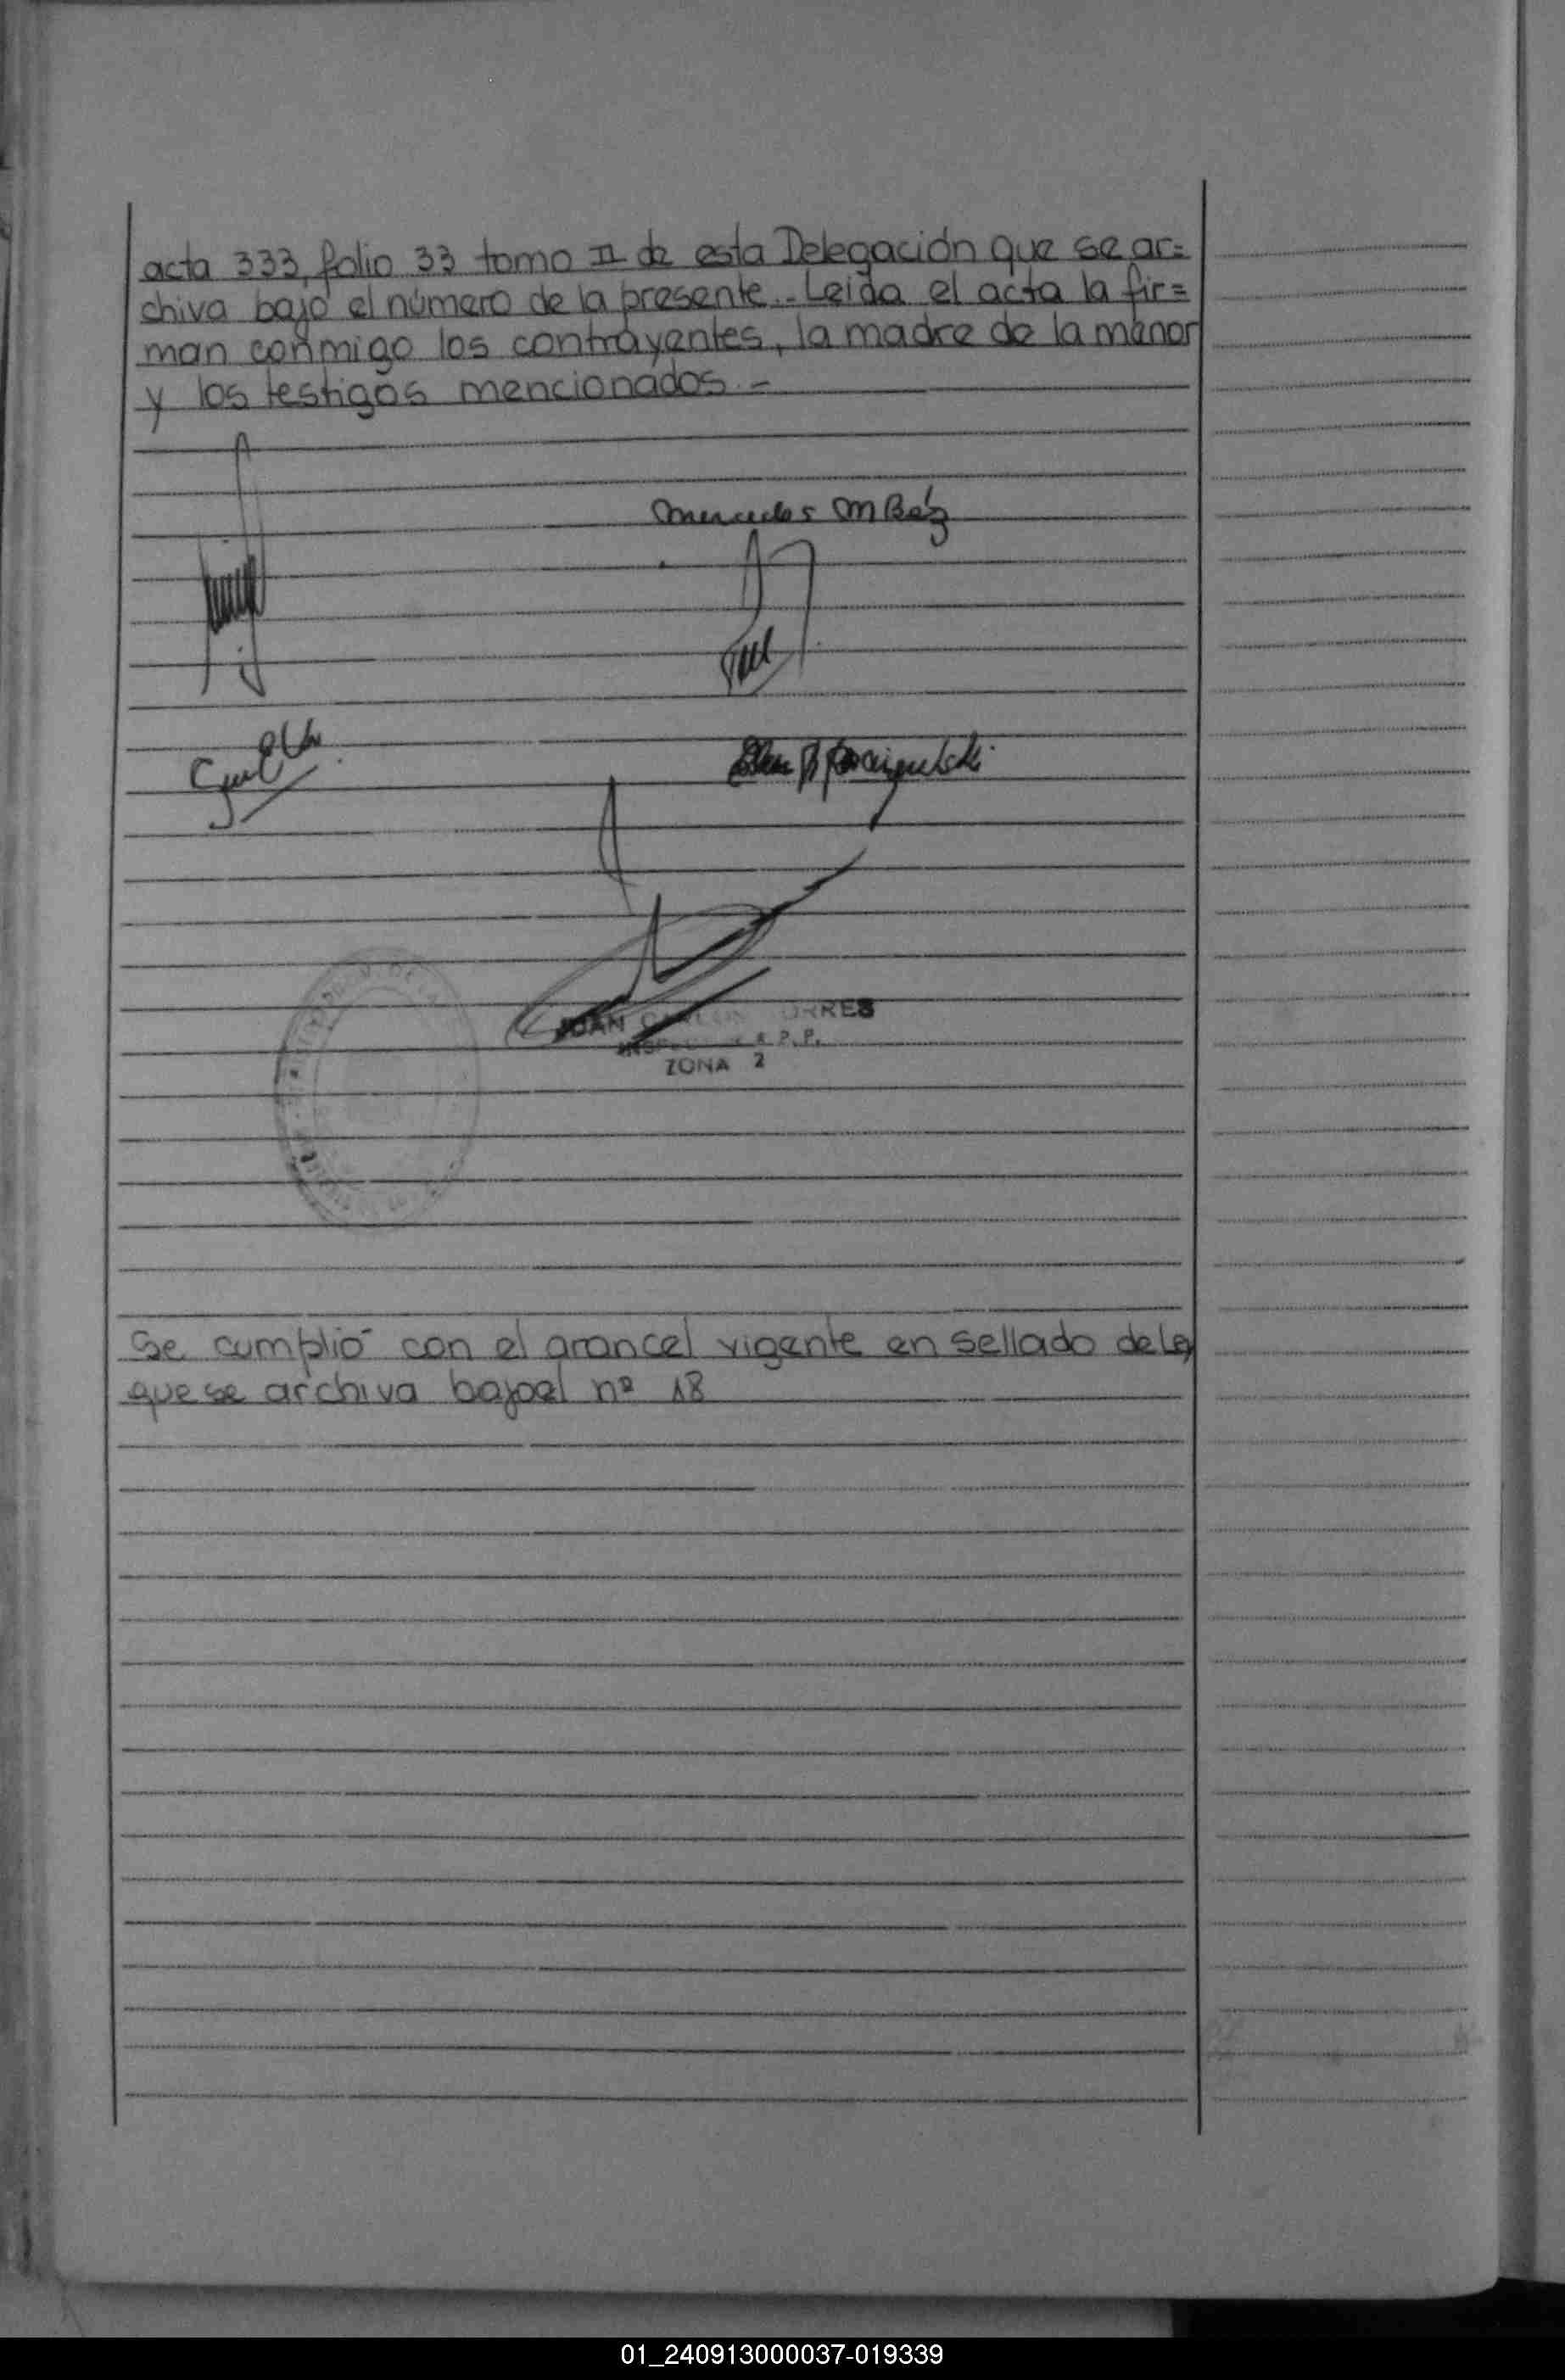 acta 333, folio 33 tomo II de esta Delegación que se ar=
chiva bajo el número de la presente.- Leida el acta la fir=
man conmigo los contrayentes, la madre de la menor
y los testigos mencionados.-
Mercedes M Báez
JUAN CARLOS TORRES
ZONA 2
Se cumplió con el arancel vigente en sellado de Ley
que se archiva bajo el nº 18
01_240913000037-019339